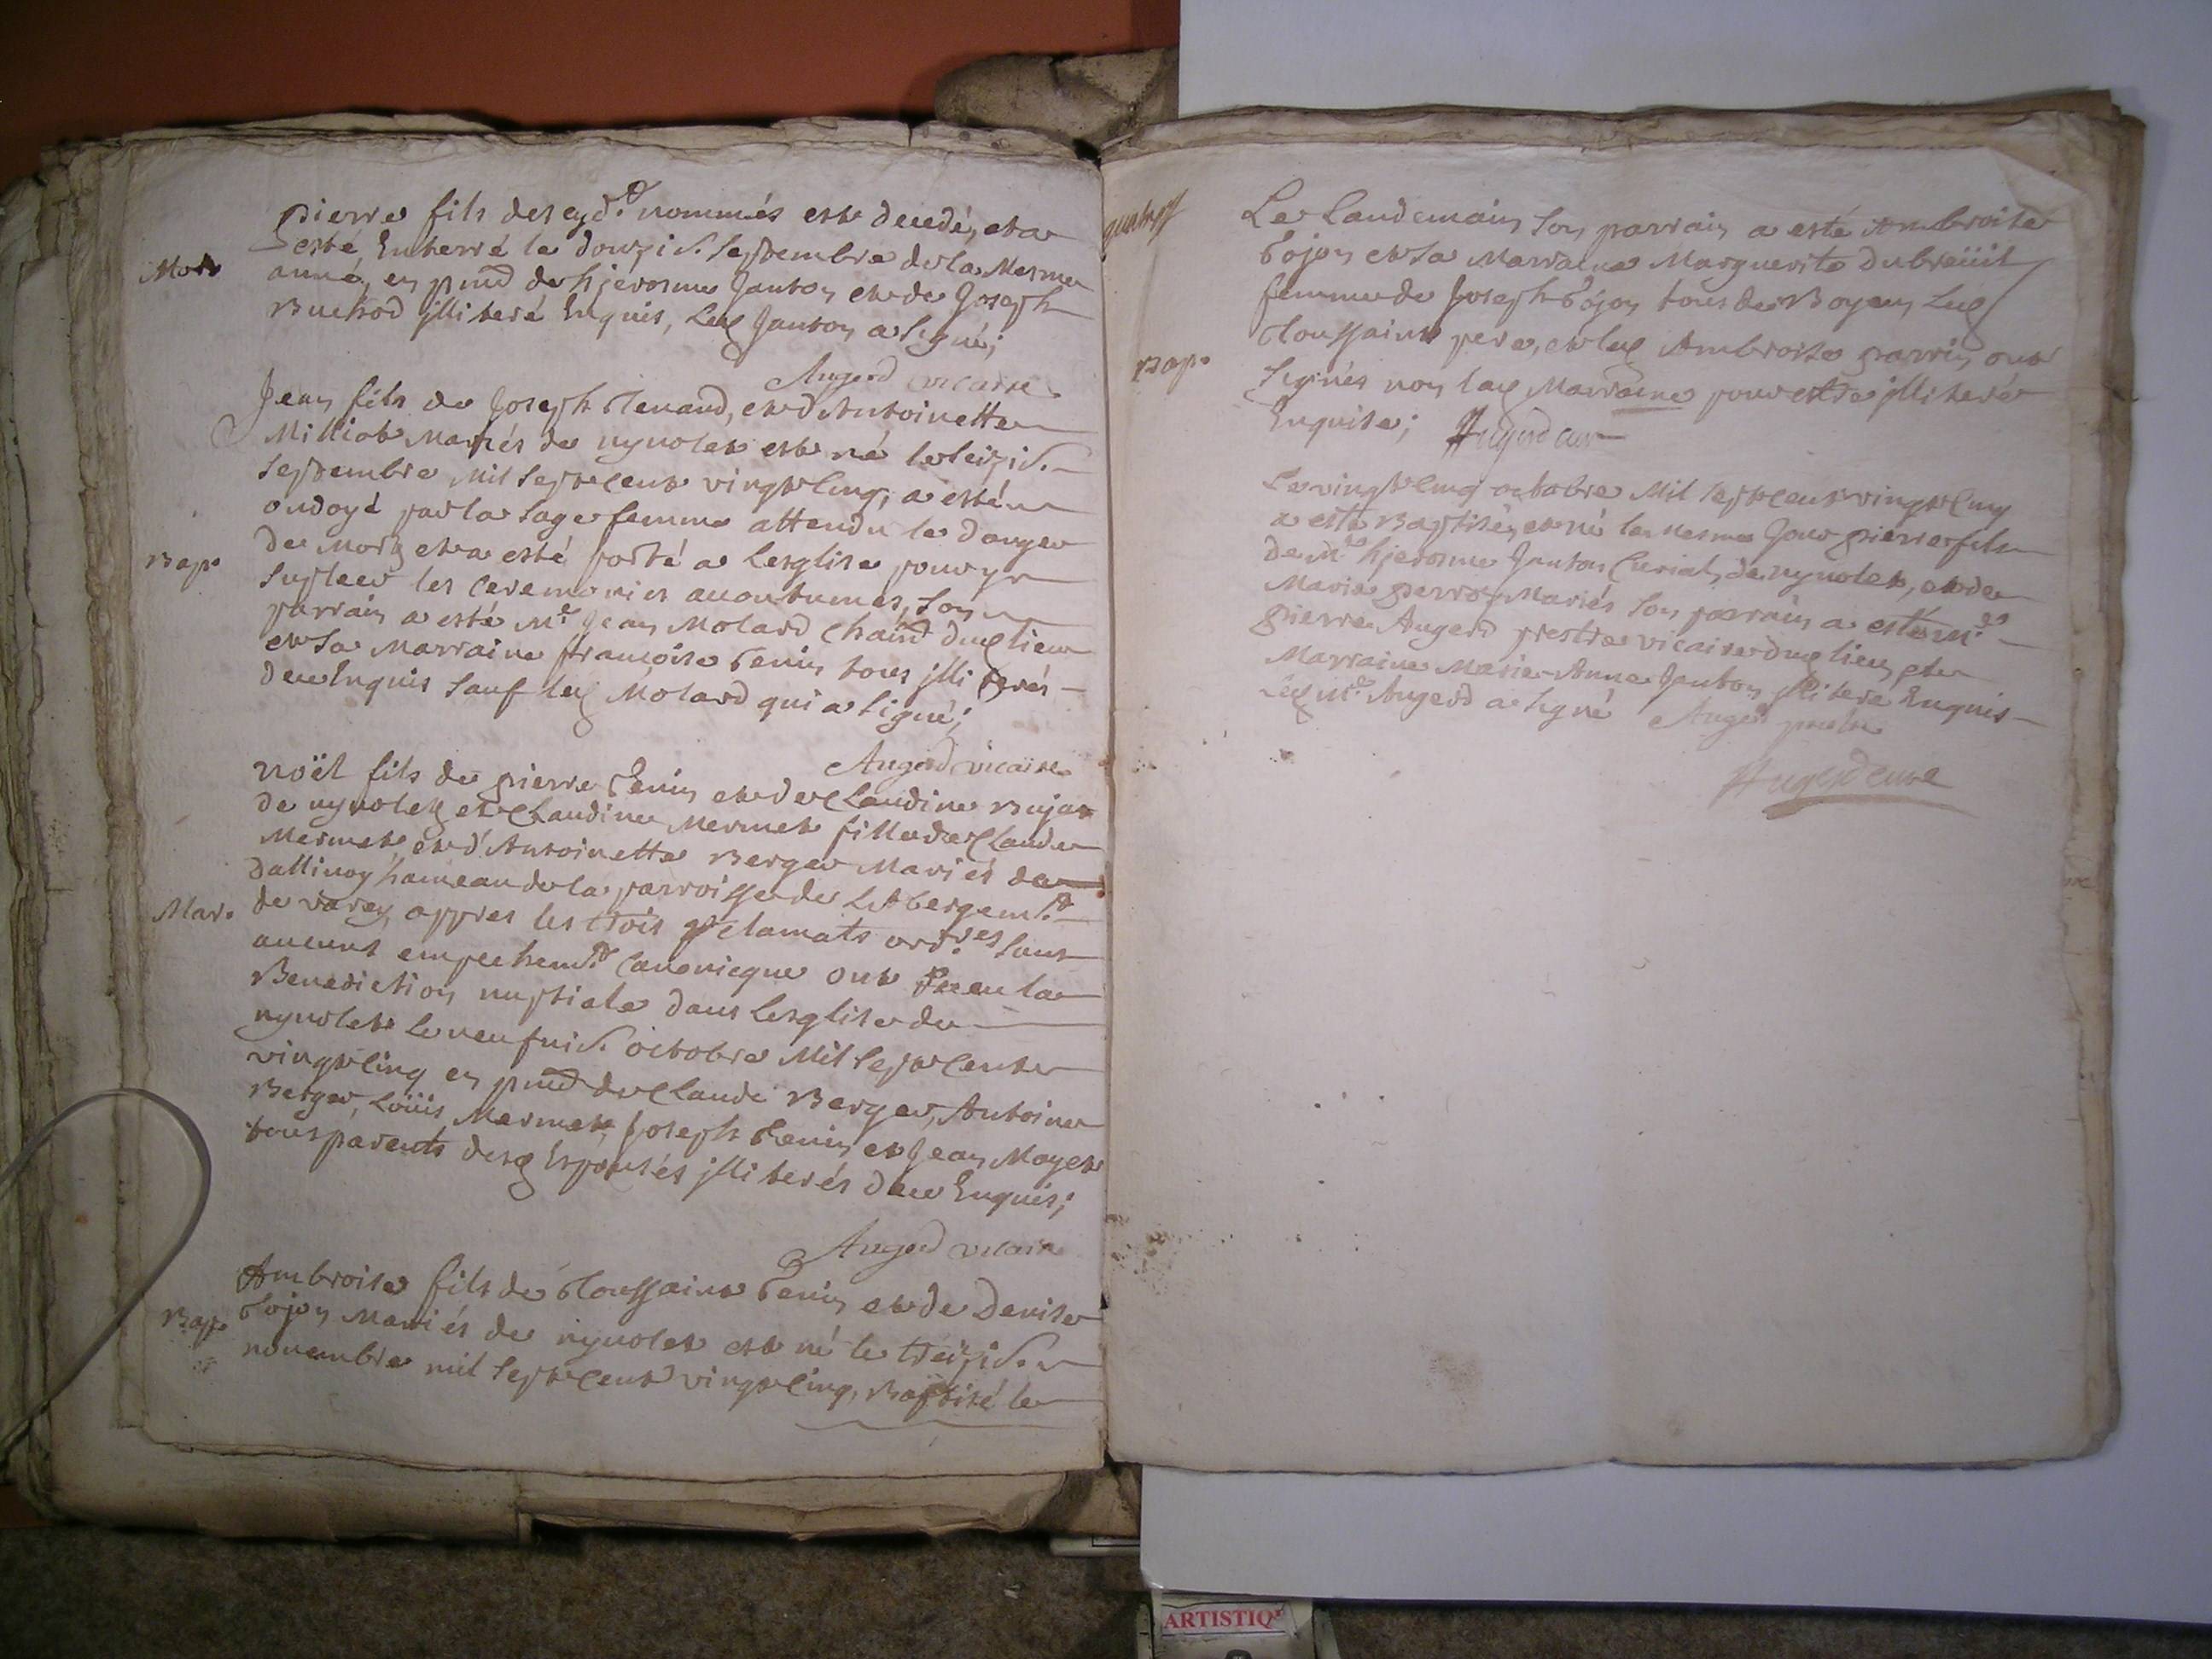 pierre fils des cyd.t nommés est decedé, et a
esté Enterré le douzie. septembre de la Mesme
Mort
anné, en pñce de hjerosme Janton et de Joseph
Buchod jlliteré Enquis, Led Janton a signé;
Augerd vicaire
Jean fils de Joseph Tenand, et d'Antoinette
Milliat Mariés de nyvolet est né le seizie.
septembre Mil sept cent vingt cinq, a esté
ondoyé par la sage femme attendu le danger
de Mort et a esté porté a Lesglise pour y
Bap.
supleer les ceremonies accoutumés, son
parrain a esté Mr. Jean Molard dud lieu
et sa Marraine françoise Tenin tous jlliterés
deue Enquis sauf led Molard qui a signé;
Augerd vicaire
Noël fils de pierre Tenin et de Claudine Bujat
de nyvolet et Claudine Mermet fille de Claude
Mermet et d'Antoinette Berger Mariés de
dallinoy hameau de la parroisse de L'Abergem.t
Mar.
de varey, appres les trois proclamats ord.res sans
aucuns empechem.t Canonicque ont receu la
Benediction nuptiale dans Lesglise de
nyvolet le neufvie. octobre Mil sept cent
vingt cinq en pñce de Claude Berger, Antoine
Berger, Loüis Mermet, Joseph Tenin et Jean Moyet
tous parents desd Espousés jlliterés deue Enquis;
Augerd vicaire
Ambroise fils de Toussaint Tenin et de Denise
Bap.
Tojon Mariés de nyvolet est né le treizie.
novembre mil sept cent vingt cinq, Baptisé le
Le Landemain son parrain a esté Ambroise
Tojon et sa Marraine Marguerite Dubreüil
femme de Joseph Tojon tous de Boyeu Led
Toussaint pere, et led Ambroise parrin ont
Bap.
signés non lad Marraine pour estre jlliterée
Enquise; Augerd cure
Le vingt cinq octobre Mil sept cent vingt cinq
a esté Baptisé, et né le mesme Jour pierre fils
de Mre hjerosme Janton Curial, de nyvolet, et de
Marie perroz Mariés son parrain a esté Mre
pierre Augerd prestre vicaire dud lieu et
Marraine Marie-Anne Janton jlliteré Enquis
Led Mre Augerd a signé Augerd
Augerd cure
ARTISTIQ